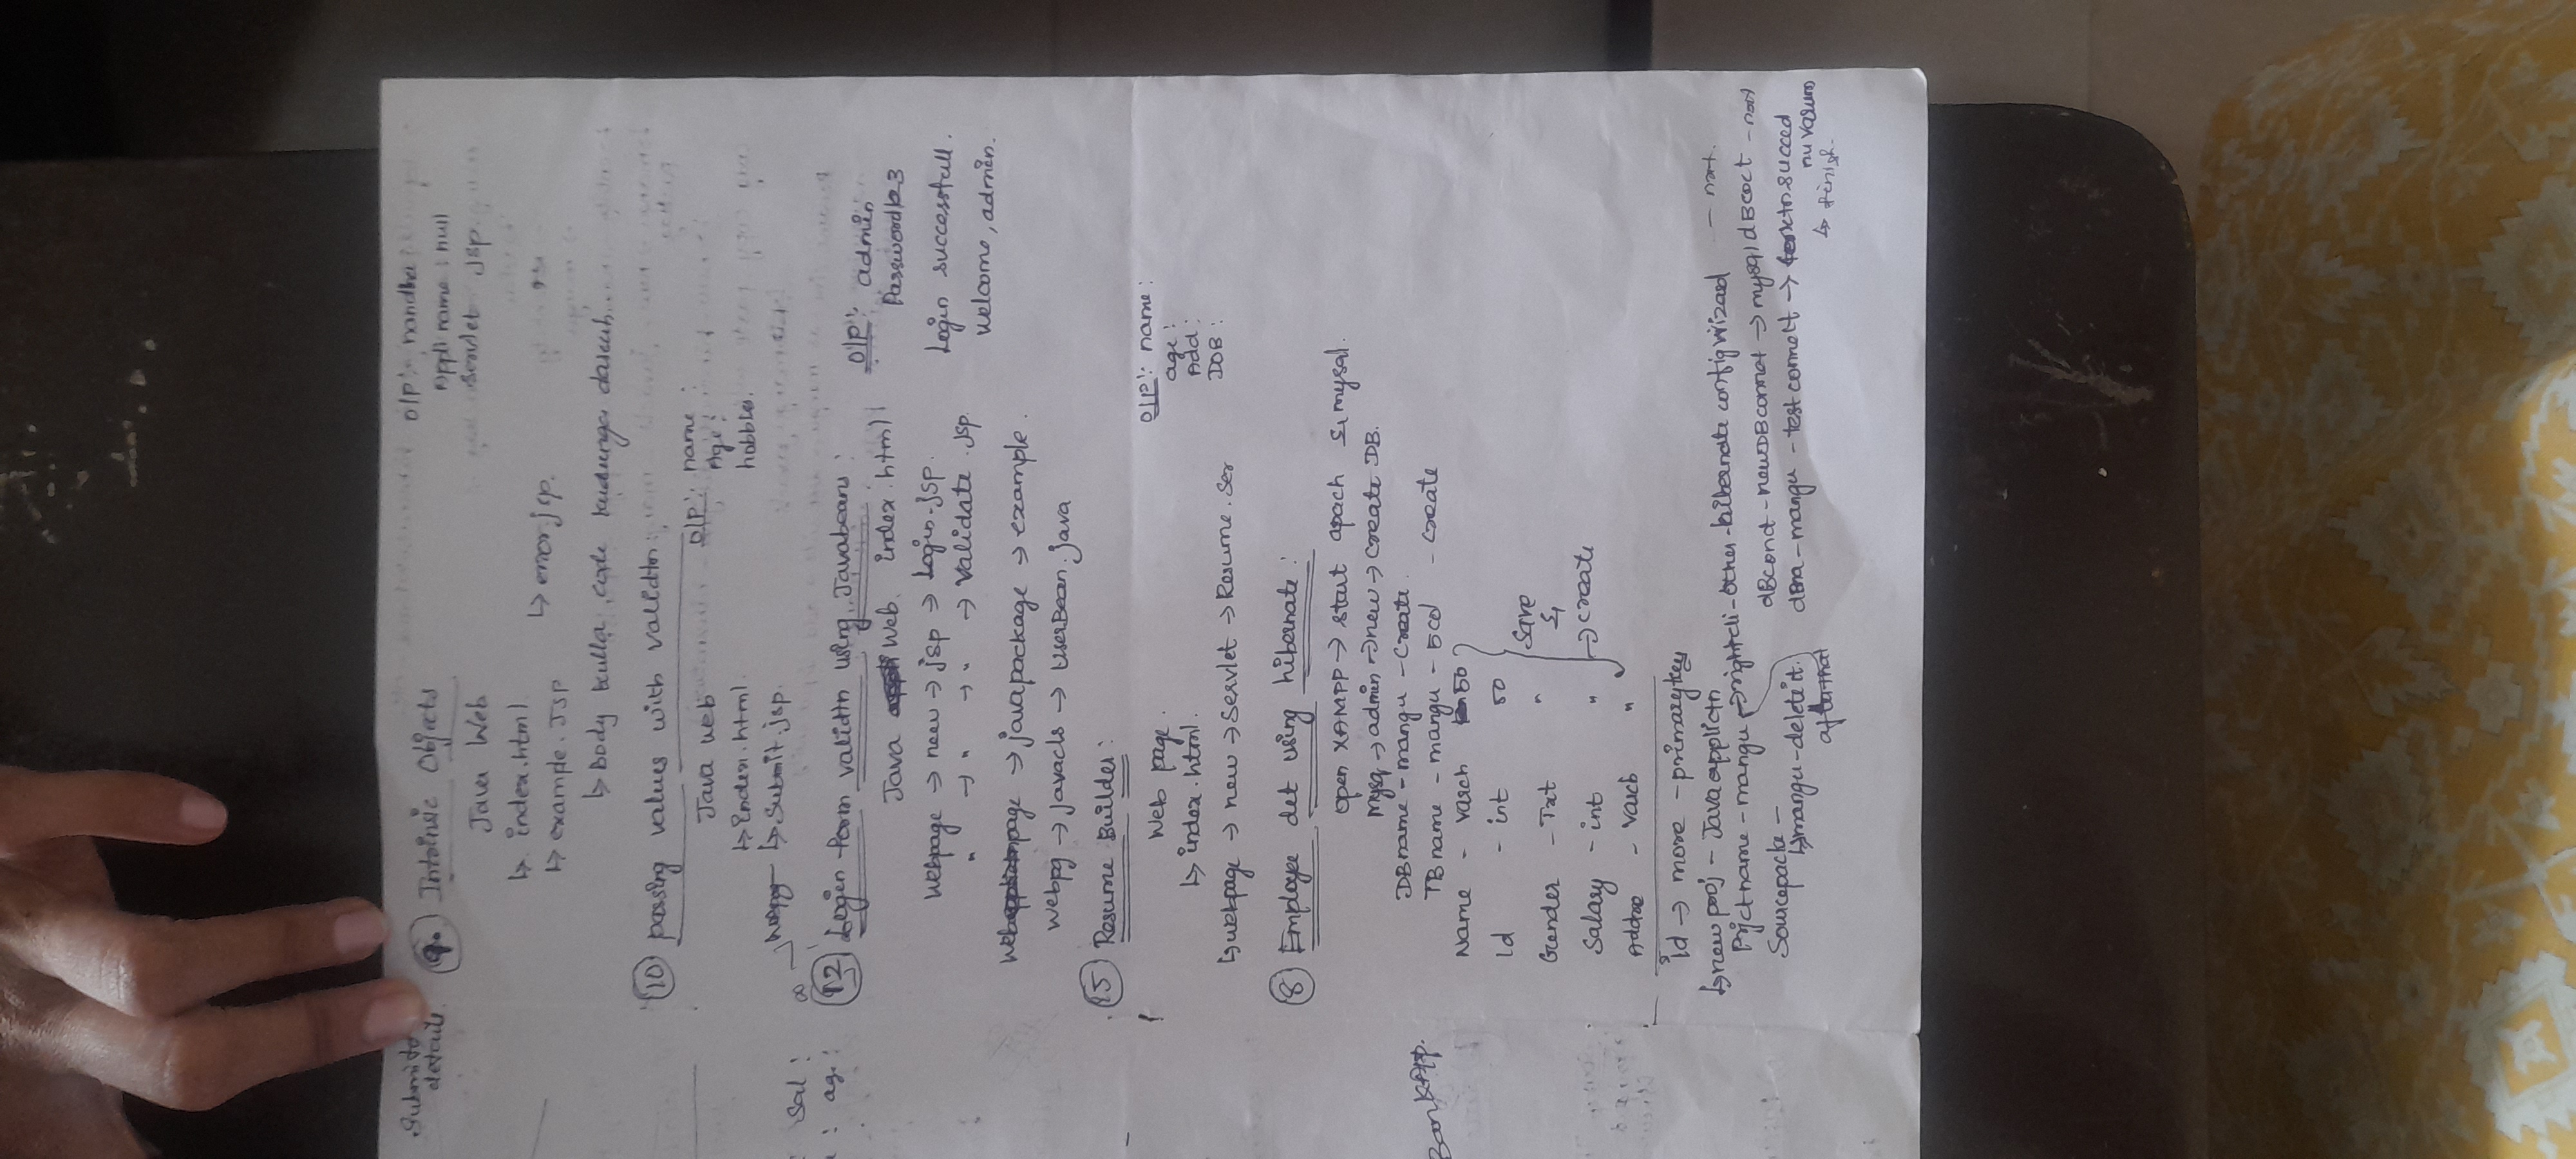 Submit to
details.
9. Intrinsic Objects
O/P:- nandha
Appli name : null
Servlet Jsp
Java Web
↳ index.html
↳ example.Jsp ↳ error.jsp.
↳ Body kulla code kudunga darsuh
10 passing values with validtn:
Java web
↳ index.html.
↳ Submit.jsp.
O/P:- name :
Age :
hobbies.
: Sal :
: age :
12 Login form validtn using Javabeans :
Java Web. index.html
Webpage → new → jsp → Login.jsp.
" → " → " → Validate.jsp.
Webpage → java package → example.
Webpg → javacls → UserBean.java
O/P:- admin
Password123
Login successfull.
Welcome, admin.
15 Resume Builder :
Web page.
↳ index.html.
↳ webpage → new → Servlet → Resume.Ser
O/P:- name :
age :
Add :
DOB :
8 Employee det using hibernate :
open XAMPP → start apach & mysql.
mysq → admin → new → create DB.
DB name - mangu - Create.
TB name - mangu - 5 col - create
BankApp.
Name - varch 50
Id - int 50
Gender - Txt "
Salary - int "
Addre - varch "
Save
&
→ create
id → more - primary key
↳ new proj - Java applictn
Prjct name - mangu → right cli - other - hibernate config wizard - nxt.
dBconct - new DB connet → mysql dBcoct - nxt
Source packe -
↳ mangu - delete it.
dBna - mangu - test connect → succed
nu varum
↳ finish.